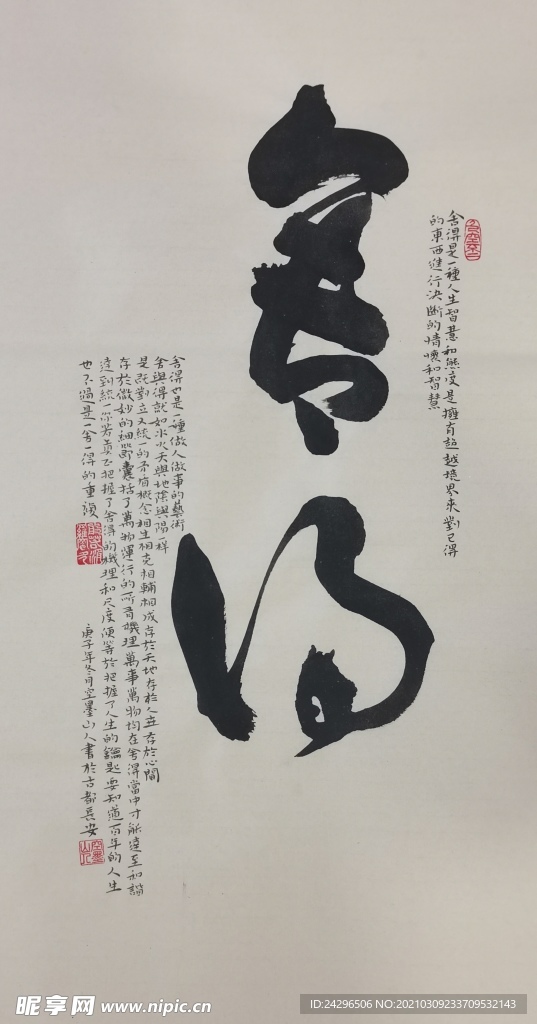 舍得
舍得是一種人生智慧和態度是擁有超越境界來對已得
的東西進行決斷的情懷和智慧
舍得也是一種做人做事的藝術
舍與得就如水火天與地陰與陽一樣
是既對立又統一的矛盾概念相生相克相輔相成存於天地存於人世存於心間
存於微妙的細節囊括了萬物運行的所有機理萬事萬物均在舍得當中才能達至和諧
達到統一你若真正把握了舍得的機理和尺度便等於把握了人生的鑰匙要知道百年的人生
也不過是一舍一得的重復
庚子年冬月空墨山人書於古都長安
昵享网 www.nipic.cn
ID:24296506 NO:20210309233709532143